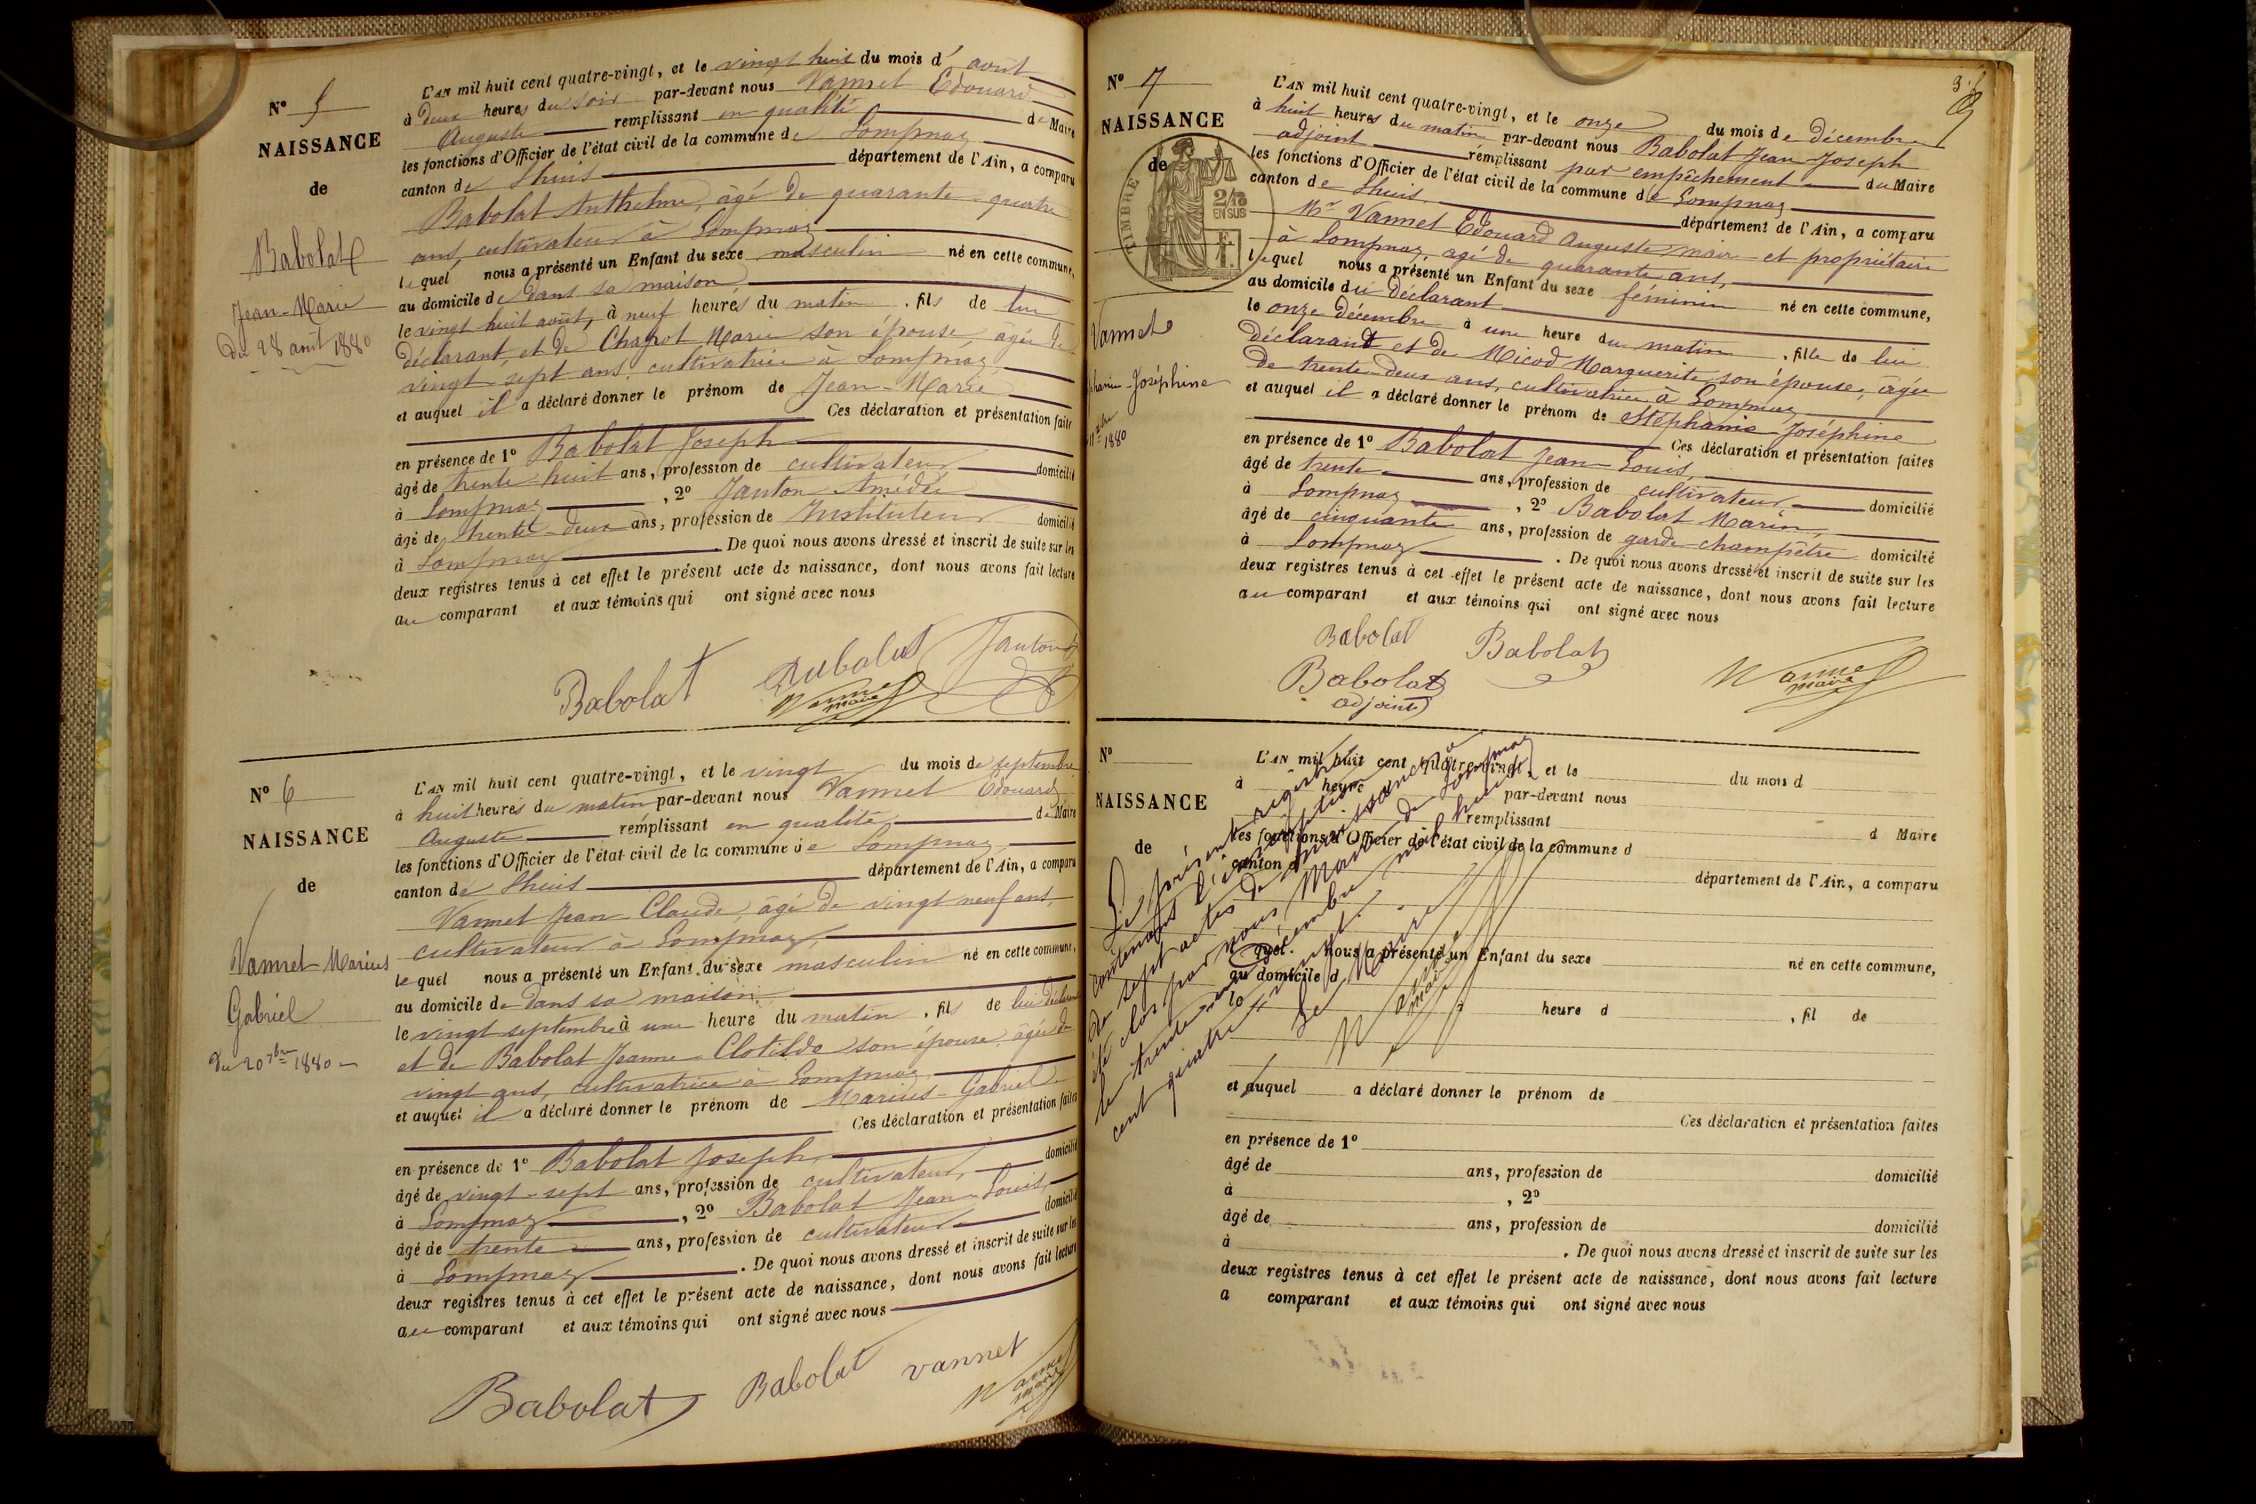 N° 5
NAISSANCE
de
Babolat
Jean-Marie
Du 28 août 1880
L'AN mil huit cent quatre-vingt, et le vingt huit du mois d'août
à deux heures du soir par-devant nous Vannet Edouard
Auguste remplissant en qualité de Maire
les fonctions d'Officier de l'état civil de la commune de Lompnaz
canton de Lhuis département de l'Ain, a comparu
Babolat Anthelme, âgé de quarante-quatre
ans, cultivateur à Lompnaz
lequel nous a présenté un Enfant du sexe masculin né en cette commune,
au domicile de dans sa maison
le vingt huit août, à neuf heures du matin, fils de lui
déclarant, et de Chapot Marie son épouse âgée de
vingt-sept ans, cultivatrice à Lompnaz
et auquel il a déclaré donner le prénom de Jean-Marie
Ces déclaration et présentation faites
en présence de 1° Babolat Joseph
âgé de trente-huit ans, profession de cultivateur domicilié
à Lompnaz, 2° Janton Amédée
âgé de trente-deux ans, profession de Instituteur domicilié
à Lompnaz. De quoi nous avons dressé et inscrit de suite sur les
deux registres tenus à cet effet le présent acte de naissance, dont nous avons fait lecture
au comparant et aux témoins qui ont signé avec nous
Babolat Babolat Janton
Vannet
maire
N° 6
NAISSANCE
de
Vannet Marius
Gabriel
Du 20 7bre 1880
L'AN mil huit cent quatre-vingt, et le vingt du mois de septembre
à huit heures du matin par-devant nous Vannet Edouard
Auguste remplissant en qualité de Maire
les fonctions d'Officier de l'état civil de la commune de Lompnaz
canton de Lhuis département de l'Ain, a comparu
Vannet Jean-Claude, âgé de vingt neuf ans,
cultivateur à Lompnaz,
lequel nous a présenté un Enfant du sexe masculin né en cette commune,
au domicile de dans sa maison
le vingt septembre à une heure du matin, fils de lui déclarant
et de Babolat Jeanne-Clotilde son épouse, âgée de
vingt ans, cultivatrice à Lompnaz
et auquel il a déclaré donner le prénom de Marius-Gabriel
Ces déclaration et présentation faites
en présence de 1° Babolat Joseph,
âgé de vingt-sept ans, profession de cultivateur, domicilié
à Lompnaz, 2° Babolat Jean-Louis
âgé de trente ans, profession de cultivateur domicilié
à Lompnaz. De quoi nous avons dressé et inscrit de suite sur les
deux registres tenus à cet effet le présent acte de naissance, dont nous avons fait lecture
au comparant et aux témoins qui ont signé avec nous
Babolat Babolat vannet
Vannet
maire
N° 7
NAISSANCE
de
TIMBRE
2/10
EN SUS
Vannet
Joséphine
1880
L'AN mil huit cent quatre-vingt, et le onze du mois de décembre
à huit heures du matin par-devant nous Babolat Jean-Joseph
adjoint remplissant par empêchement du Maire
les fonctions d'Officier de l'état civil de la commune de Lompnaz
canton de Lhuis, département de l'Ain, a comparu
Mr Vannet Edouard Auguste maire et propriétaire
à Lompnaz, agé de quarante ans,
lequel nous a présenté un Enfant du sexe féminin né en cette commune,
au domicile du déclarant
le onze décembre à une heure du matin, fille de lui
déclarant et de Micod Marguerite, son épouse, âgée
de trente-deux ans, cultivatrice à Lompnaz
et auquel il a déclaré donner le prénom de Stéphanie Joséphine
Ces déclaration et présentation faites
en présence de 1° Babolat Jean-Louis
âgé de trente ans, profession de cultivateur domicilié
à Lompnaz, 2° Babolat Marin,
âgé de cinquante ans, profession de garde-champêtre domicilié
à Lompnaz. De quoi nous avons dressé et inscrit de suite sur les
deux registres tenus à cet effet le présent acte de naissance, dont nous avons fait lecture
au comparant et aux témoins qui ont signé avec nous
Babolat Babolat
Babolat
adjoint
Vannet
maire
N°
NAISSANCE
de
L'AN mil huit cent quatre-vingt, et le du mois d
à heure par-devant nous
remplissant d Maire
les fonctions d'Officier de l'état civil de la commune d
canton d département de l'Ain, a comparu
quel nous a présenté un Enfant du sexe né en cette commune,
au domicile d
le à heure d , fil de
et auquel a déclaré donner le prénom de
Ces déclaration et présentation faites
en présence de 1°
âgé de ans, profession de domicilié
à , 2°
âgé de ans, profession de domicilié
à . De quoi nous avons dressé et inscrit de suite sur les
deux registres tenus à cet effet le présent acte de naissance, dont nous avons fait lecture
a comparant et aux témoins qui ont signé avec nous
Le présent registre
contenant l'inscription
de sept actes de naissance a
été clos par nous Maire de Lompnaz
le trente un Décembre mil huit
cent quatre-vingt.
Le Maire
Vannet
maire